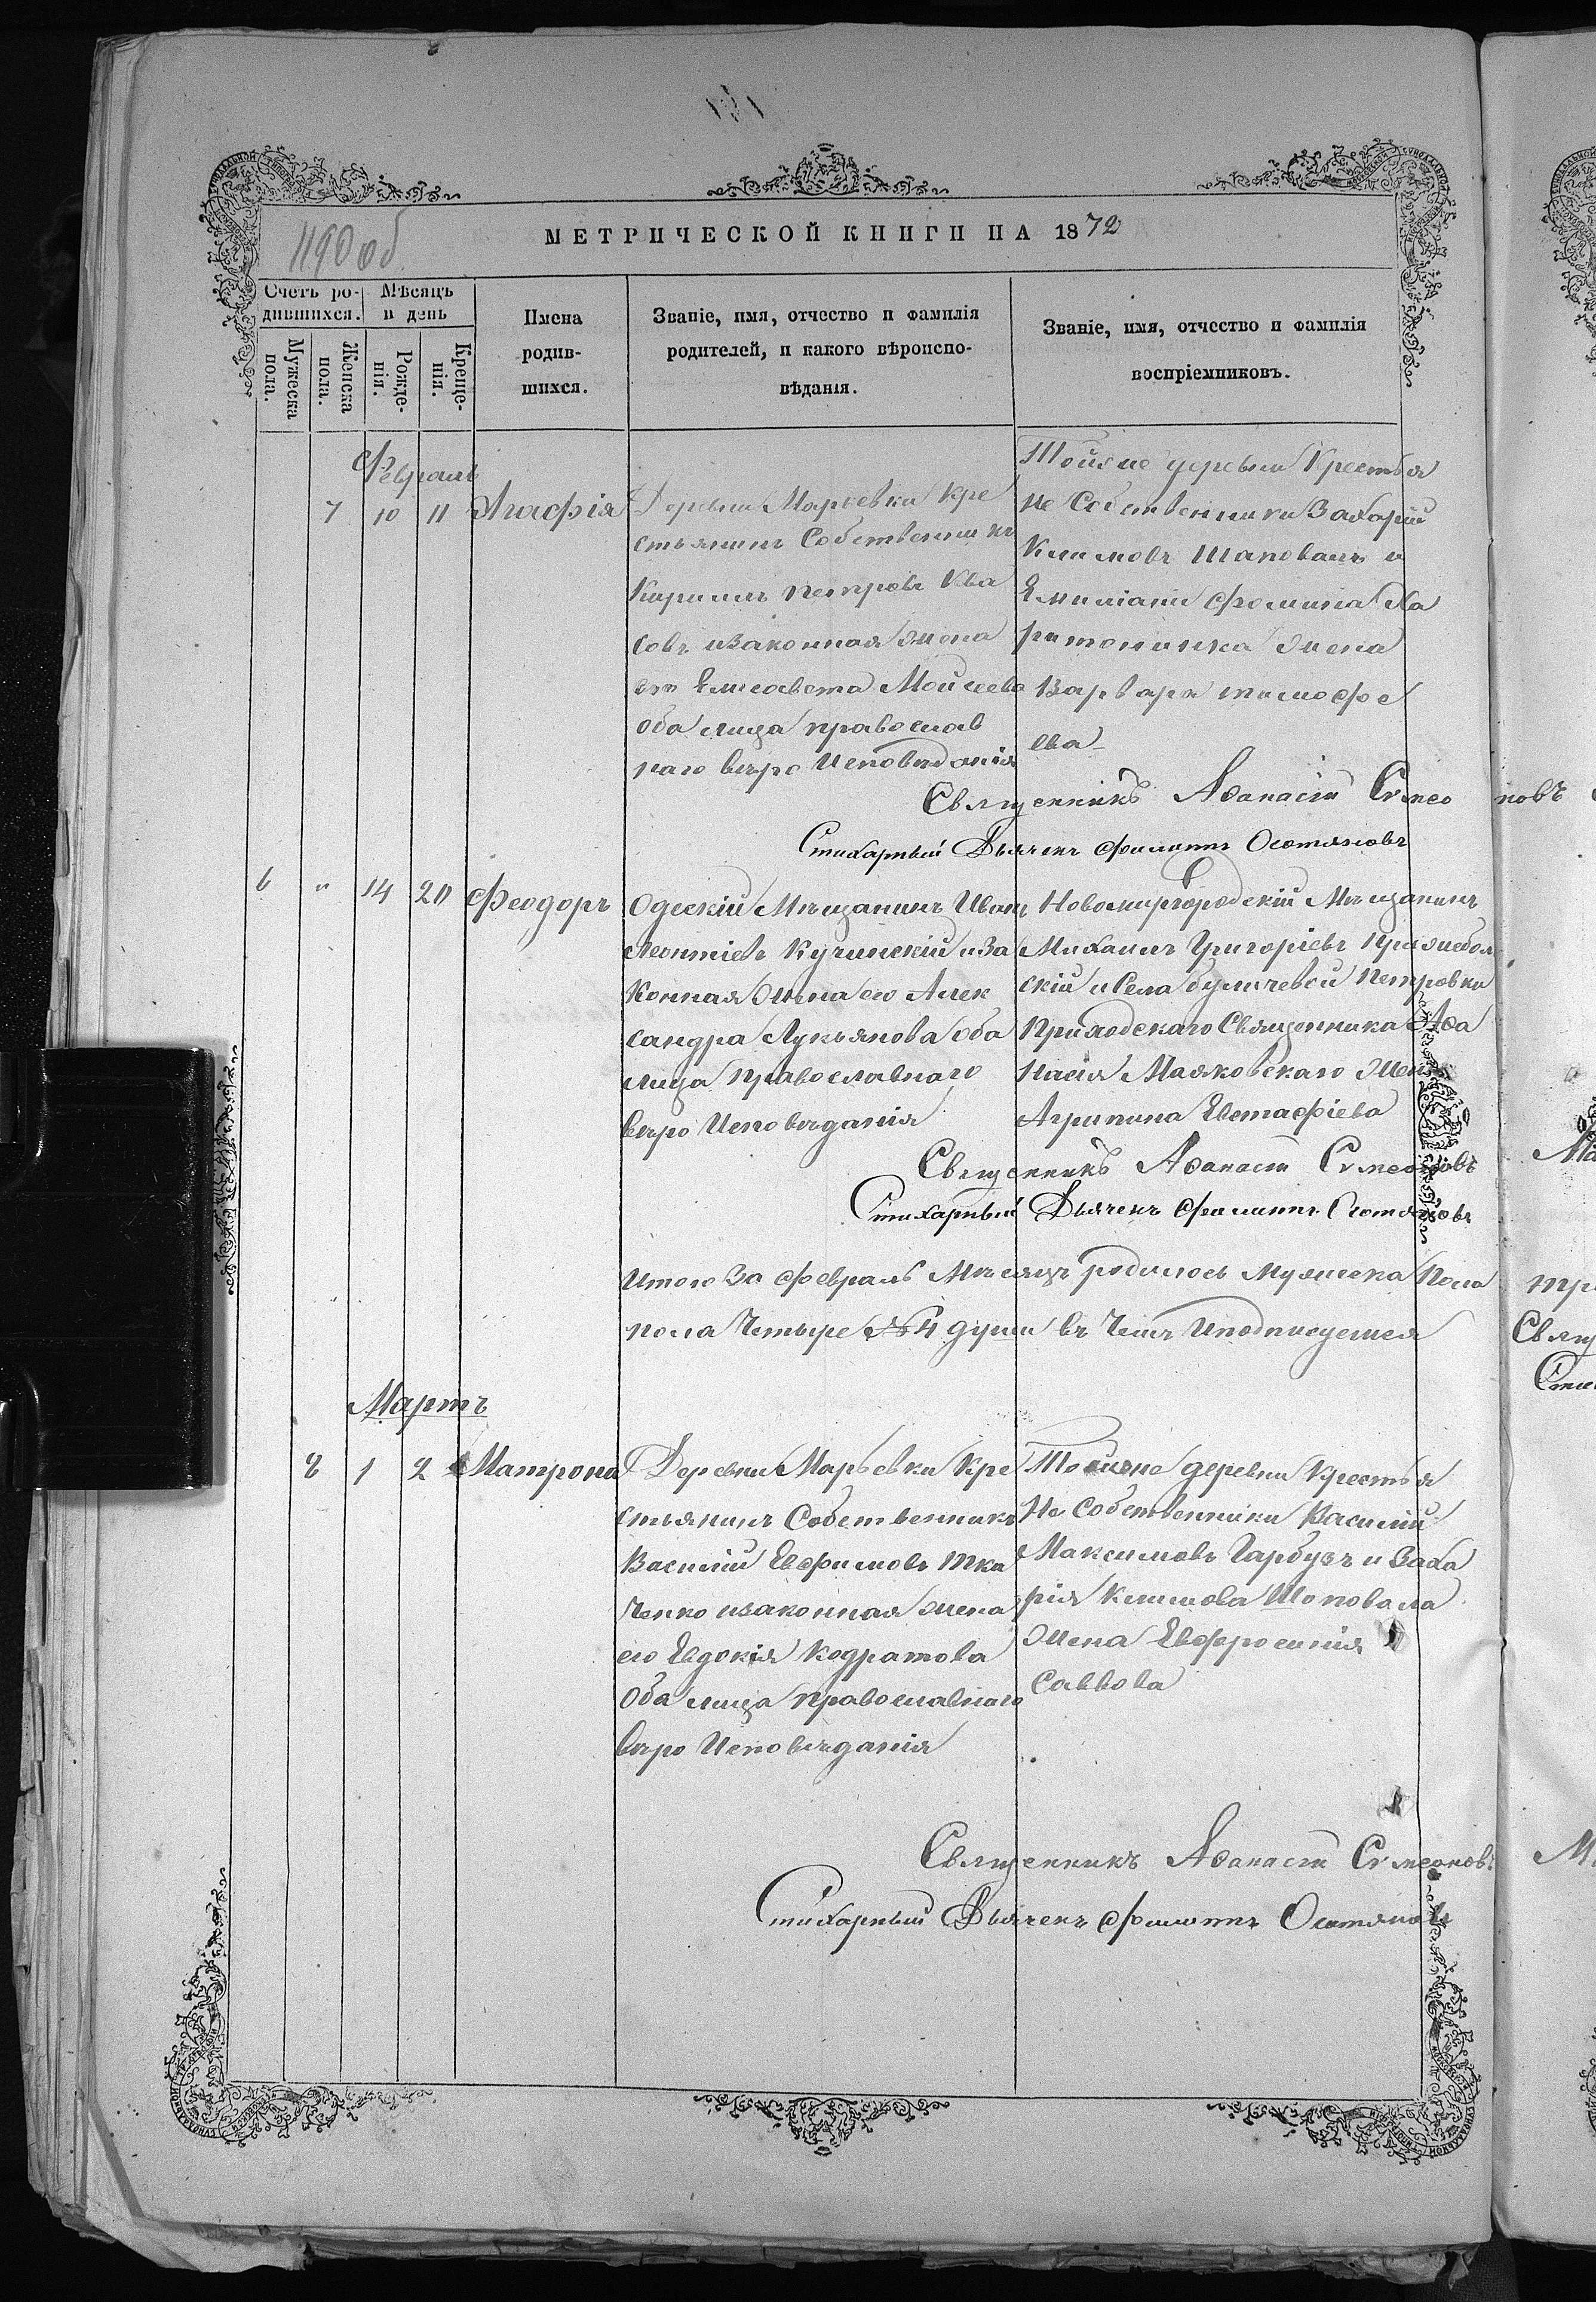 1190 об
МЕТРИЧЕСКОЙ КНИГИ НА 1872
Счетъ ро-
дившихся.
Мѣсяцъ
и день
Мужеска
пола.
Женска
пола.
Рожде-
нія.
Креще-
нія.
Имена
родив-
шихся.
Званіе, имя, отчество и фамилія
родителей, и какого вѣроиспо-
вѣданія.
Званіе, имя, отчество и фамилія
воспріемниковъ.
Февраль
7 10 11 Агафія
Деревни Марьевки Кре
стьянинъ Собственникъ
Кирилъ Петровъ Ква
совъ изаконная жена
его Елисавета Моисеева
оба лица православ
наго вѣро Исповѣданія
Тойже деревни Крестья
не Собственники Захарій
Климовъ Шаповалъ и
Емиліана Фомина Ха
ритоника жена
Варвара тимофе
ева
Священникъ Аѳанасій Сѵмеоновъ
Стихарный Дьячекъ Филипъ
6 " 14 20 Феодоръ
Одескій Мѣщанинъ Иванъ
Леонтіевъ Кучинскій иза
Конная жена его Алек
сандра Лукьянова оба
лица православнаго
вѣро Исповѣданія
Новомиргородскій Мѣщанинъ
Михаилъ Григоріевъ
скій и Села Петровки
Приходскаго Священника Аѳа
насія Маяковскаго Жена
Агрипина Евстафіева
Священникъ Аѳанасій Сѵмеоновъ
Стихарный Дьячекъ Филипъ
Итого За февраль Мѣсяцъ родилось Мужеска Пола
пола Четыре № 4 души въ Чемъ Иподписуемся
Мартъ
8 1 2 Матрона
Деревни Марьевки Кре
стьянинъ Собственникъ
Василій Евфимовъ Тка
ченко изаконная жена
его Евдокія Кодратова
Оба лица православнаго
вѣро Исповѣданія
Тойже деревни Крестья
не Собственники Василій
Максимовъ Гарбузъ и Заха
рія Климова Шоповала
Жена Евфросинія
Саввова
Священникъ Аѳанасій Сѵмеоновъ
Стихарный Дьячекъ Филипъ